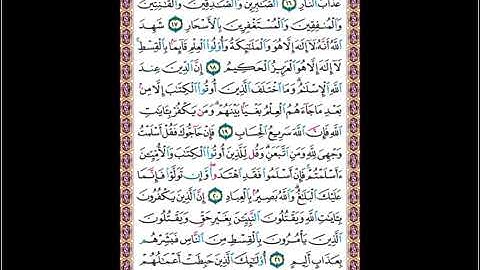 عَذَابَ النَّارِ ١٦ الصَّابِرِينَ وَالصَّادِقِينَ وَالْقَانِتِينَ
وَالْمُنفِقِينَ وَالْمُسْتَغْفِرِينَ بِالْأَسْحَارِ ١٧ شَهِدَ
اللَّهُ أَنَّهُ لَا إِلَٰهَ إِلَّا هُوَ وَالْمَلَائِكَةُ وَأُولُوا الْعِلْمِ قَائِمًا بِالْقِسْطِ
لَا إِلَٰهَ إِلَّا هُوَ الْعَزِيزُ الْحَكِيمُ ١٨ إِنَّ الدِّينَ عِندَ
اللَّهِ الْإِسْلَامُ وَمَا اخْتَلَفَ الَّذِينَ أُوتُوا الْكِتَابَ إِلَّا مِن
بَعْدِ مَا جَاءَهُمُ الْعِلْمُ بَغْيًا بَيْنَهُمْ وَمَن يَكْفُرْ بِآيَاتِ
اللَّهِ فَإِنَّ اللَّهَ سَرِيعُ الْحِسَابِ ١٩ فَإِنْ حَاجُّوكَ فَقُلْ أَسْلَمْتُ
وَجْهِيَ لِلَّهِ وَمَنِ اتَّبَعَنِ وَقُل لِّلَّذِينَ أُوتُوا الْكِتَابَ وَالْأُمِّيِّينَ
أَأَسْلَمْتُمْ فَإِنْ أَسْلَمُوا فَقَدِ اهْتَدَوا وَّإِن تَوَلَّوْا فَإِنَّمَا
عَلَيْكَ الْبَلَاغُ وَاللَّهُ بَصِيرٌ بِالْعِبَادِ ٢٠ إِنَّ الَّذِينَ يَكْفُرُونَ
بِآيَاتِ اللَّهِ وَيَقْتُلُونَ النَّبِيِّينَ بِغَيْرِ حَقٍّ وَيَقْتُلُونَ
الَّذِينَ يَأْمُرُونَ بِالْقِسْطِ مِنَ النَّاسِ فَبَشِّرْهُم
بِعَذَابٍ أَلِيمٍ ٢١ أُولَٰئِكَ الَّذِينَ حَبِطَتْ أَعْمَالُهُمْ